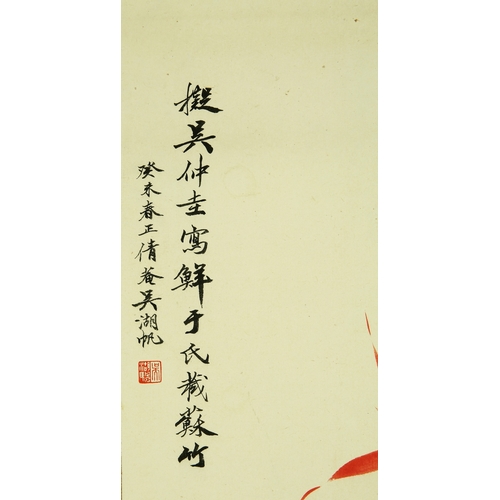 擬吳仲圭寫鮮于氏藏蘇竹
癸未春正倩菴吳湖帆